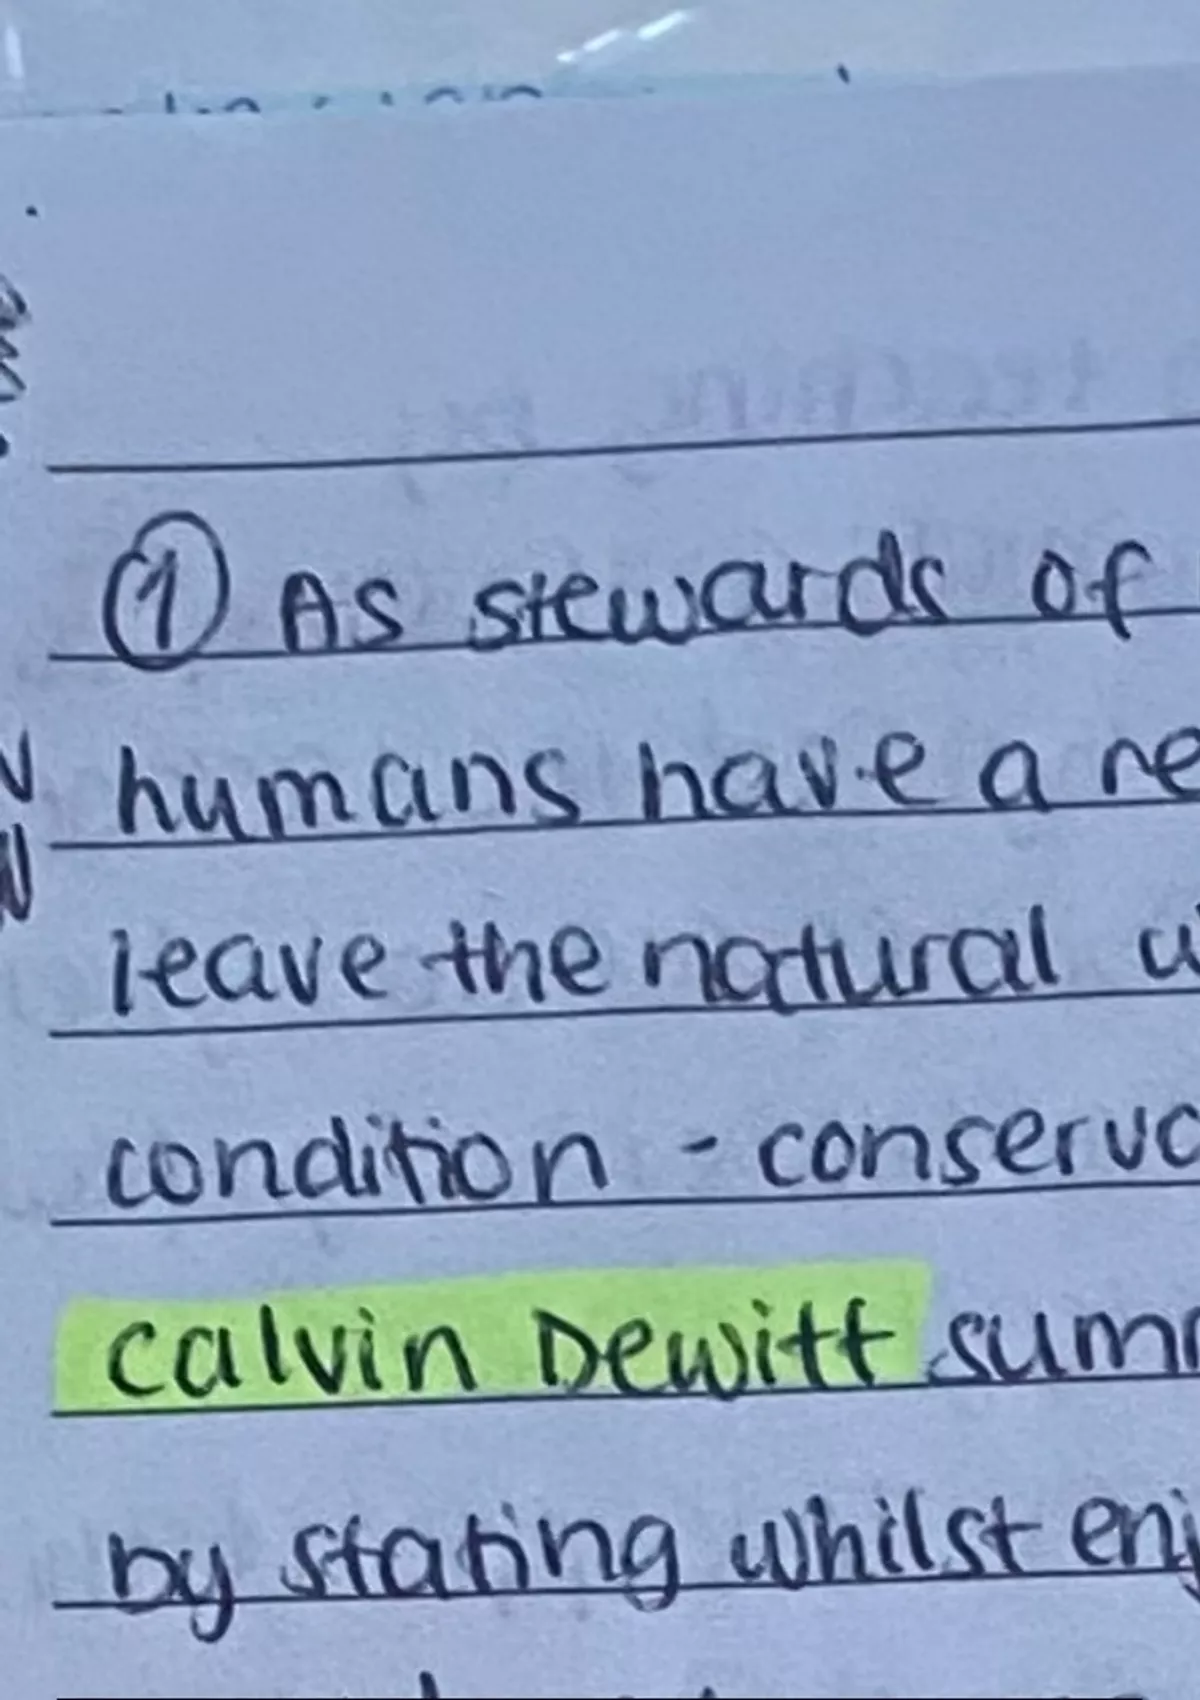 ① As stewards of
humans have a re
leave the natural w
condition - conserva
Calvin Dewitt summ
by stating whilst enj